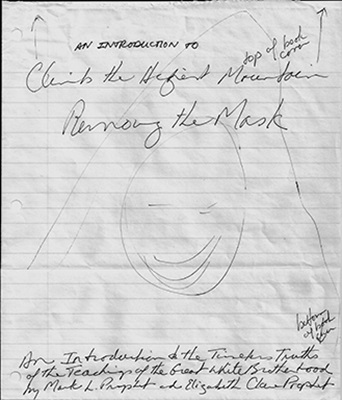 AN INTRODUCTION TO
top of book
cover
Climb the Highest Mountain
Removing the Mask
bottom
of book
An Introduction to the Timeless Truths
of the Teachings of the Great White Brotherhood
by Mark L. Prophet and Elizabeth Clare Prophet